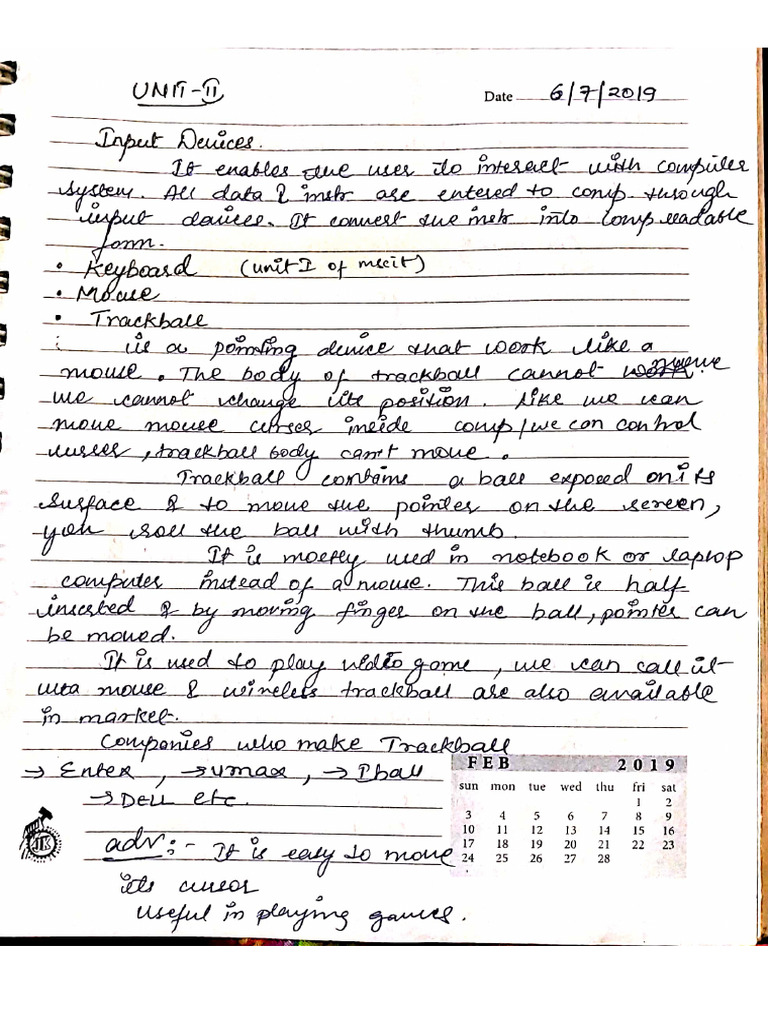 UNIT-II
Date 6/7/2019
Input Devices.
It enables the user to interact with computer
system. All data & instr are entered to comp through
input devices. It convert the instr into comp readable
form.
• Keyboard (unit I of mscit)
• Mouse
• Trackball
is a pointing device that work like a
mouse. The body of trackball cannot move
we cannot change its position. Like we can
move mouse curser inside comp/we can control
curser, trackball body can't move.
Trackball contains a ball exposed on its
surface & to move the pointer on the screen,
you roll the ball with thumb.
It is mostly used in notebook or laptop
computer instead of a mouse. This ball is half
inserted & by moving finger on the ball, pointer can
be moved.
It is used to play video game, we can call it
mouse & wireless trackball are also available
in market.
Companies who make Trackball
→ Enter, → umax, → Iball
→ Dell etc.
FEB 2019
sun mon tue wed thu fri sat
1 2
3 4 5 6 7 8 9
10 11 12 13 14 15 16
17 18 19 20 21 22 23
24 25 26 27 28
JK
adv:- It is easy to move
its cursor
useful in playing games.